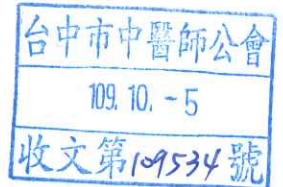 台中市中醫師公會
109. 10. -5
收文第109534號